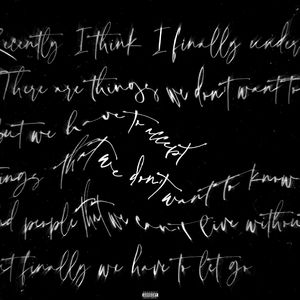 Recently I think I finally under
There are things we don't want to
but we have to accept
ings that we don't want to know
nd people that we can't live withou
ut finally we have to let go